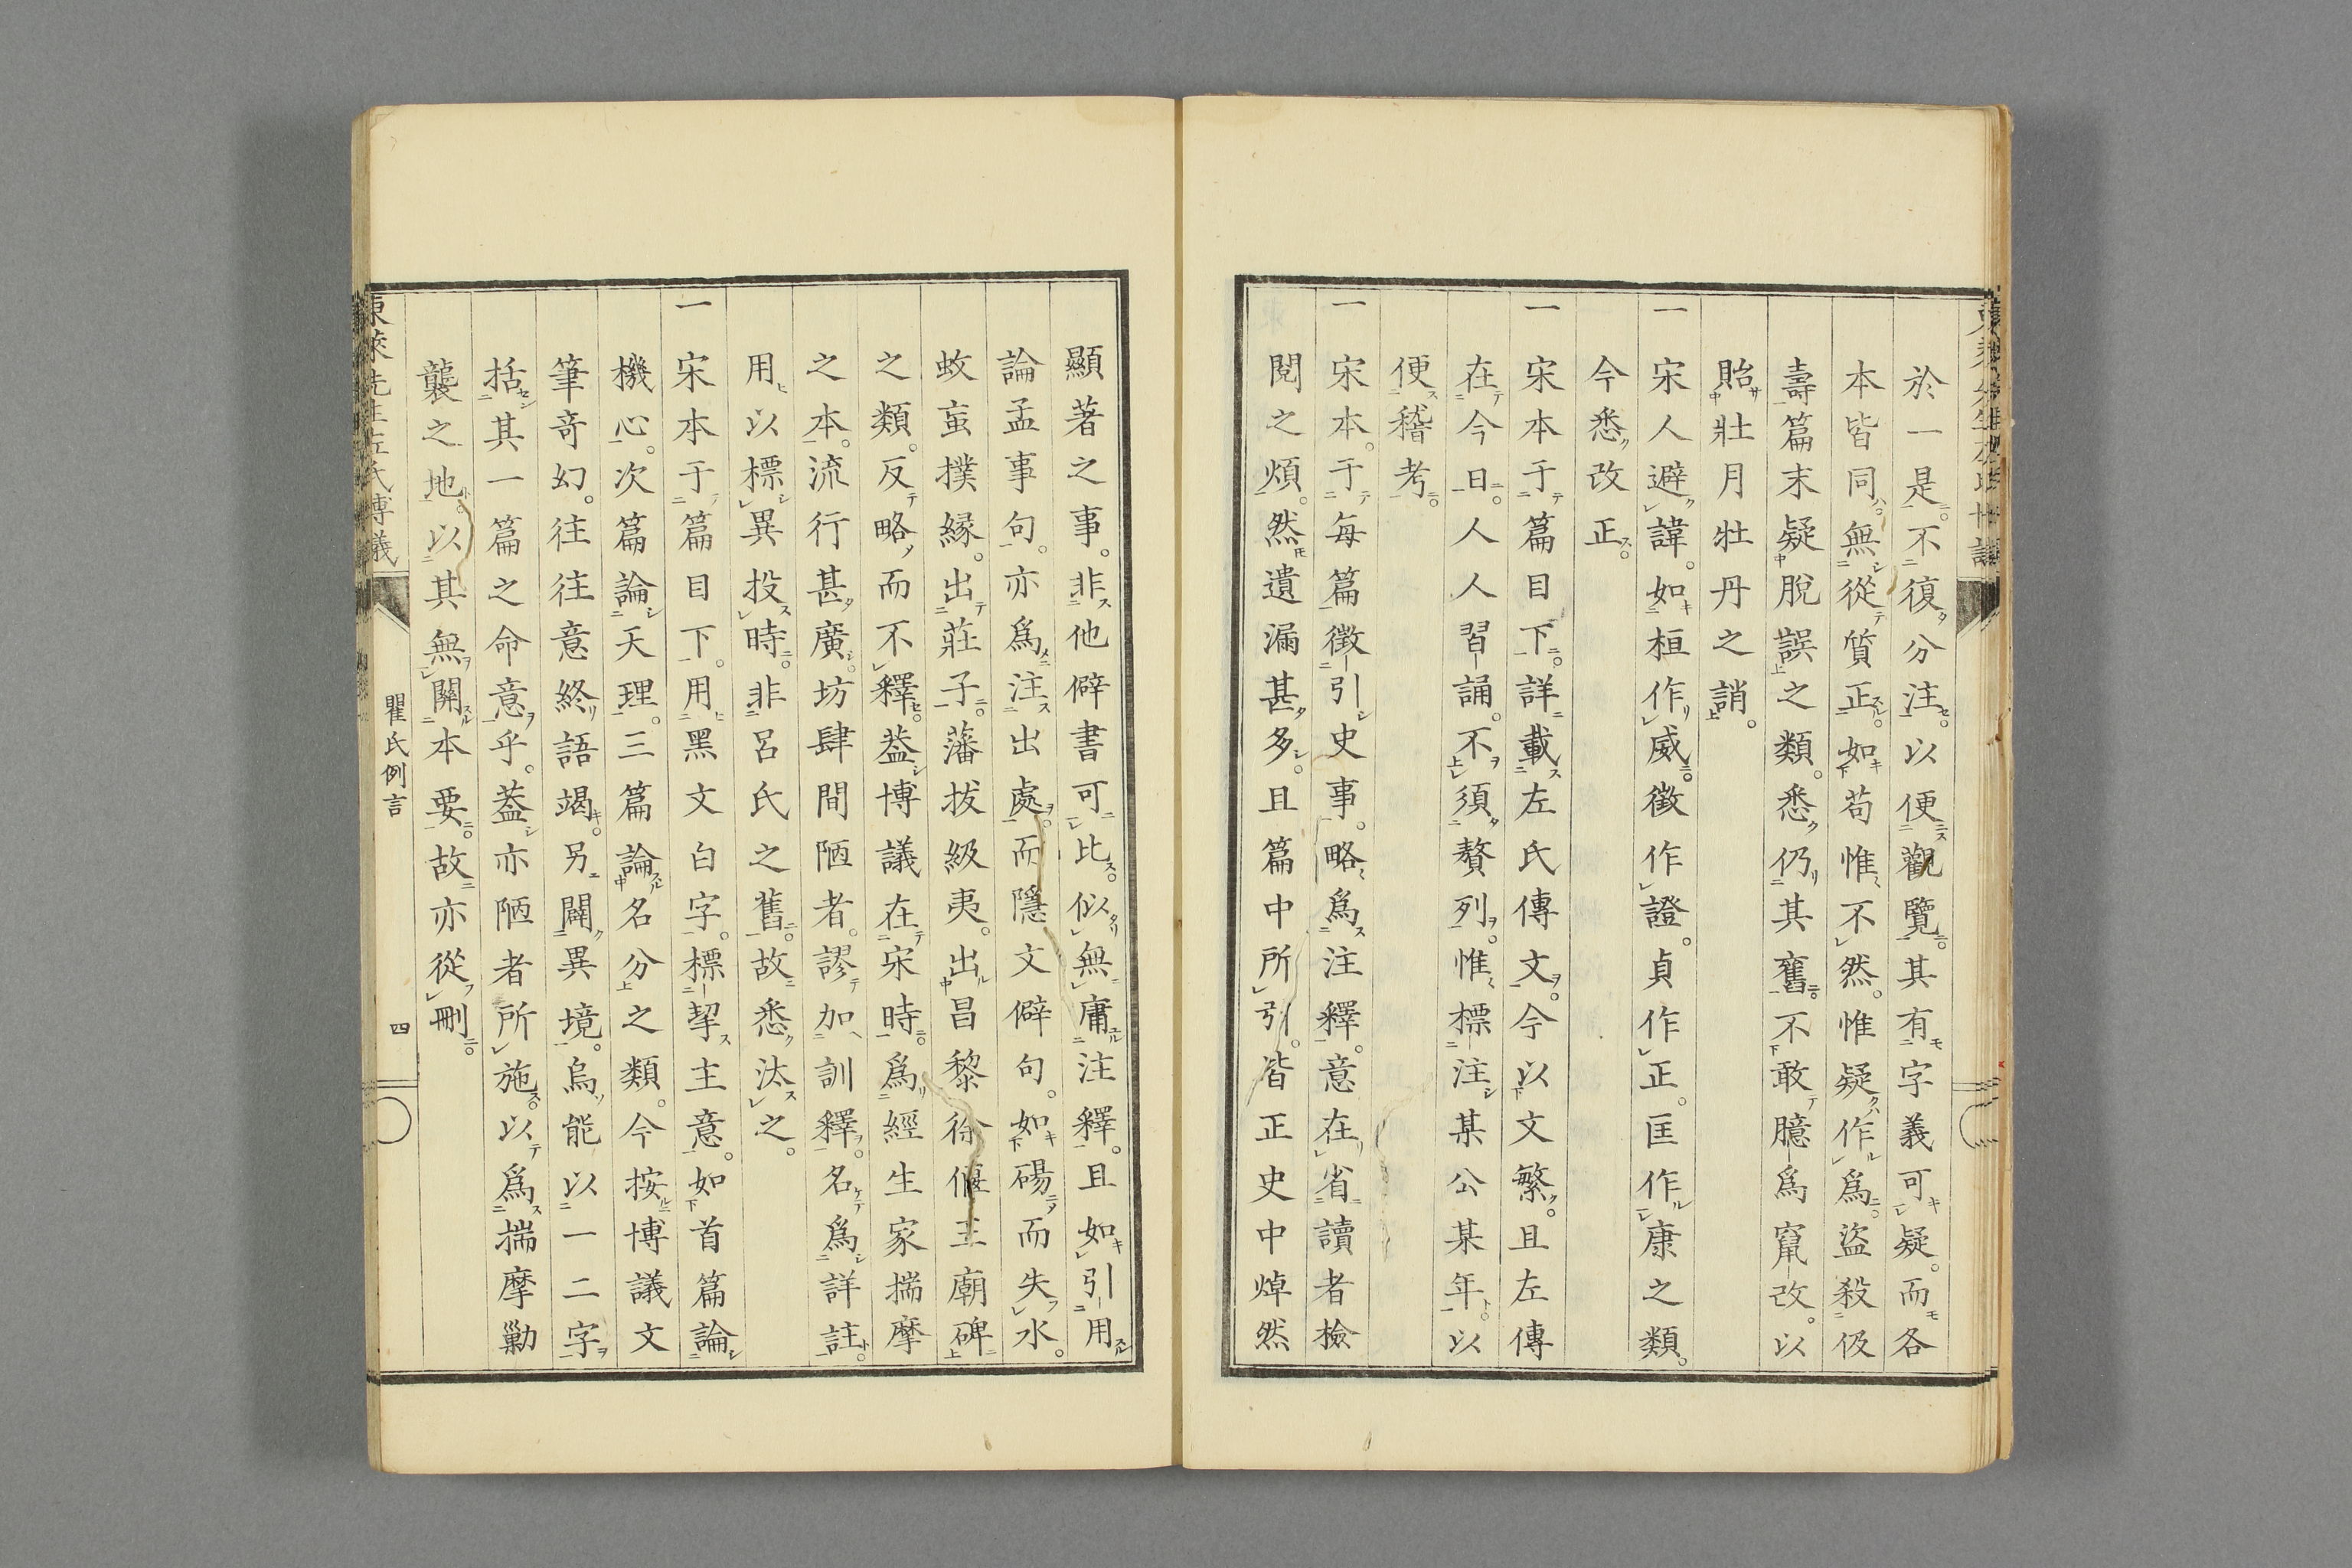 於一是不復分注以便觀覽其有字義可疑而各
本皆同無從質正如苟惟不然惟疑作爲盜殺伋
壽篇末疑脫誤之類悉仍其舊不敢臆爲竄改以
貽壯月牡丹之誚
一宋人避諱如桓作威徵作證貞作正匡作康之類
今悉改正
一宋本于篇目下詳載左氏傳文今以文繁且左傳
在今日人人習誦不須贅列惟標注某公某年以
便稽考
一宋本于每篇徵引史事略爲注釋意在省讀者檢
閱之煩然遺漏甚多且篇中所引皆正史中焯然
顯著之事非他僻書可比似無庸注釋且如引用
論孟事句亦爲注出處而隱文僻句如碭而失水
蚊䖟撲緣出莊子藩拔級夷出昌黎徐偃王廟碑
之類反略而不釋蓋博議在宋時爲經生家揣摩
之本流行甚廣坊肆間陋者謬加訓釋名爲詳註
用以標異投時非呂氏之舊故悉汰之
一宋本于篇目下用黑文白字標挈主意如首篇論
機心次篇論天理三篇論名分之類今按博議文
筆奇幻往往意終語竭另闢異境烏能以一二字
括其一篇之命意乎蓋亦陋者所施以爲揣摩勦
襲之地以其無關本要故亦從刪
東萊先生左氏博議
瞿氏例言
四